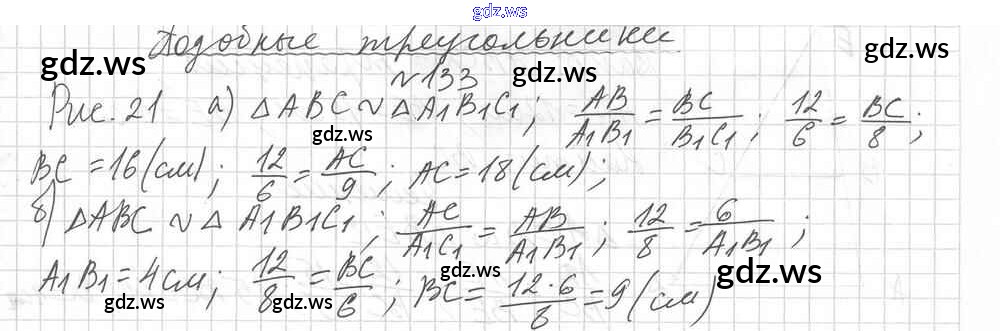 gdz.ws
Подобные треугольники.
gdz.ws gdz.ws gdz.ws
№133
Рис. 21 а) △ABC ~ △A1B1C1; AB/A1B1 = BC/B1C1; 12/6 = BC/8;
gdz.ws
BC = 16 (см); 12/6 = AC/9; AC = 18 (см);
gdz.ws gdz.ws
б) △ABC ~ △ A1B1C1; AC/A1C1 = AB/A1B1; 12/8 = 6/A1B1;
gdz.ws gdz.ws
A1B1 = 4 см; 12/8 = BC/6; BC = 12·6/8 = 9 (см)
gdz.ws gdz.ws